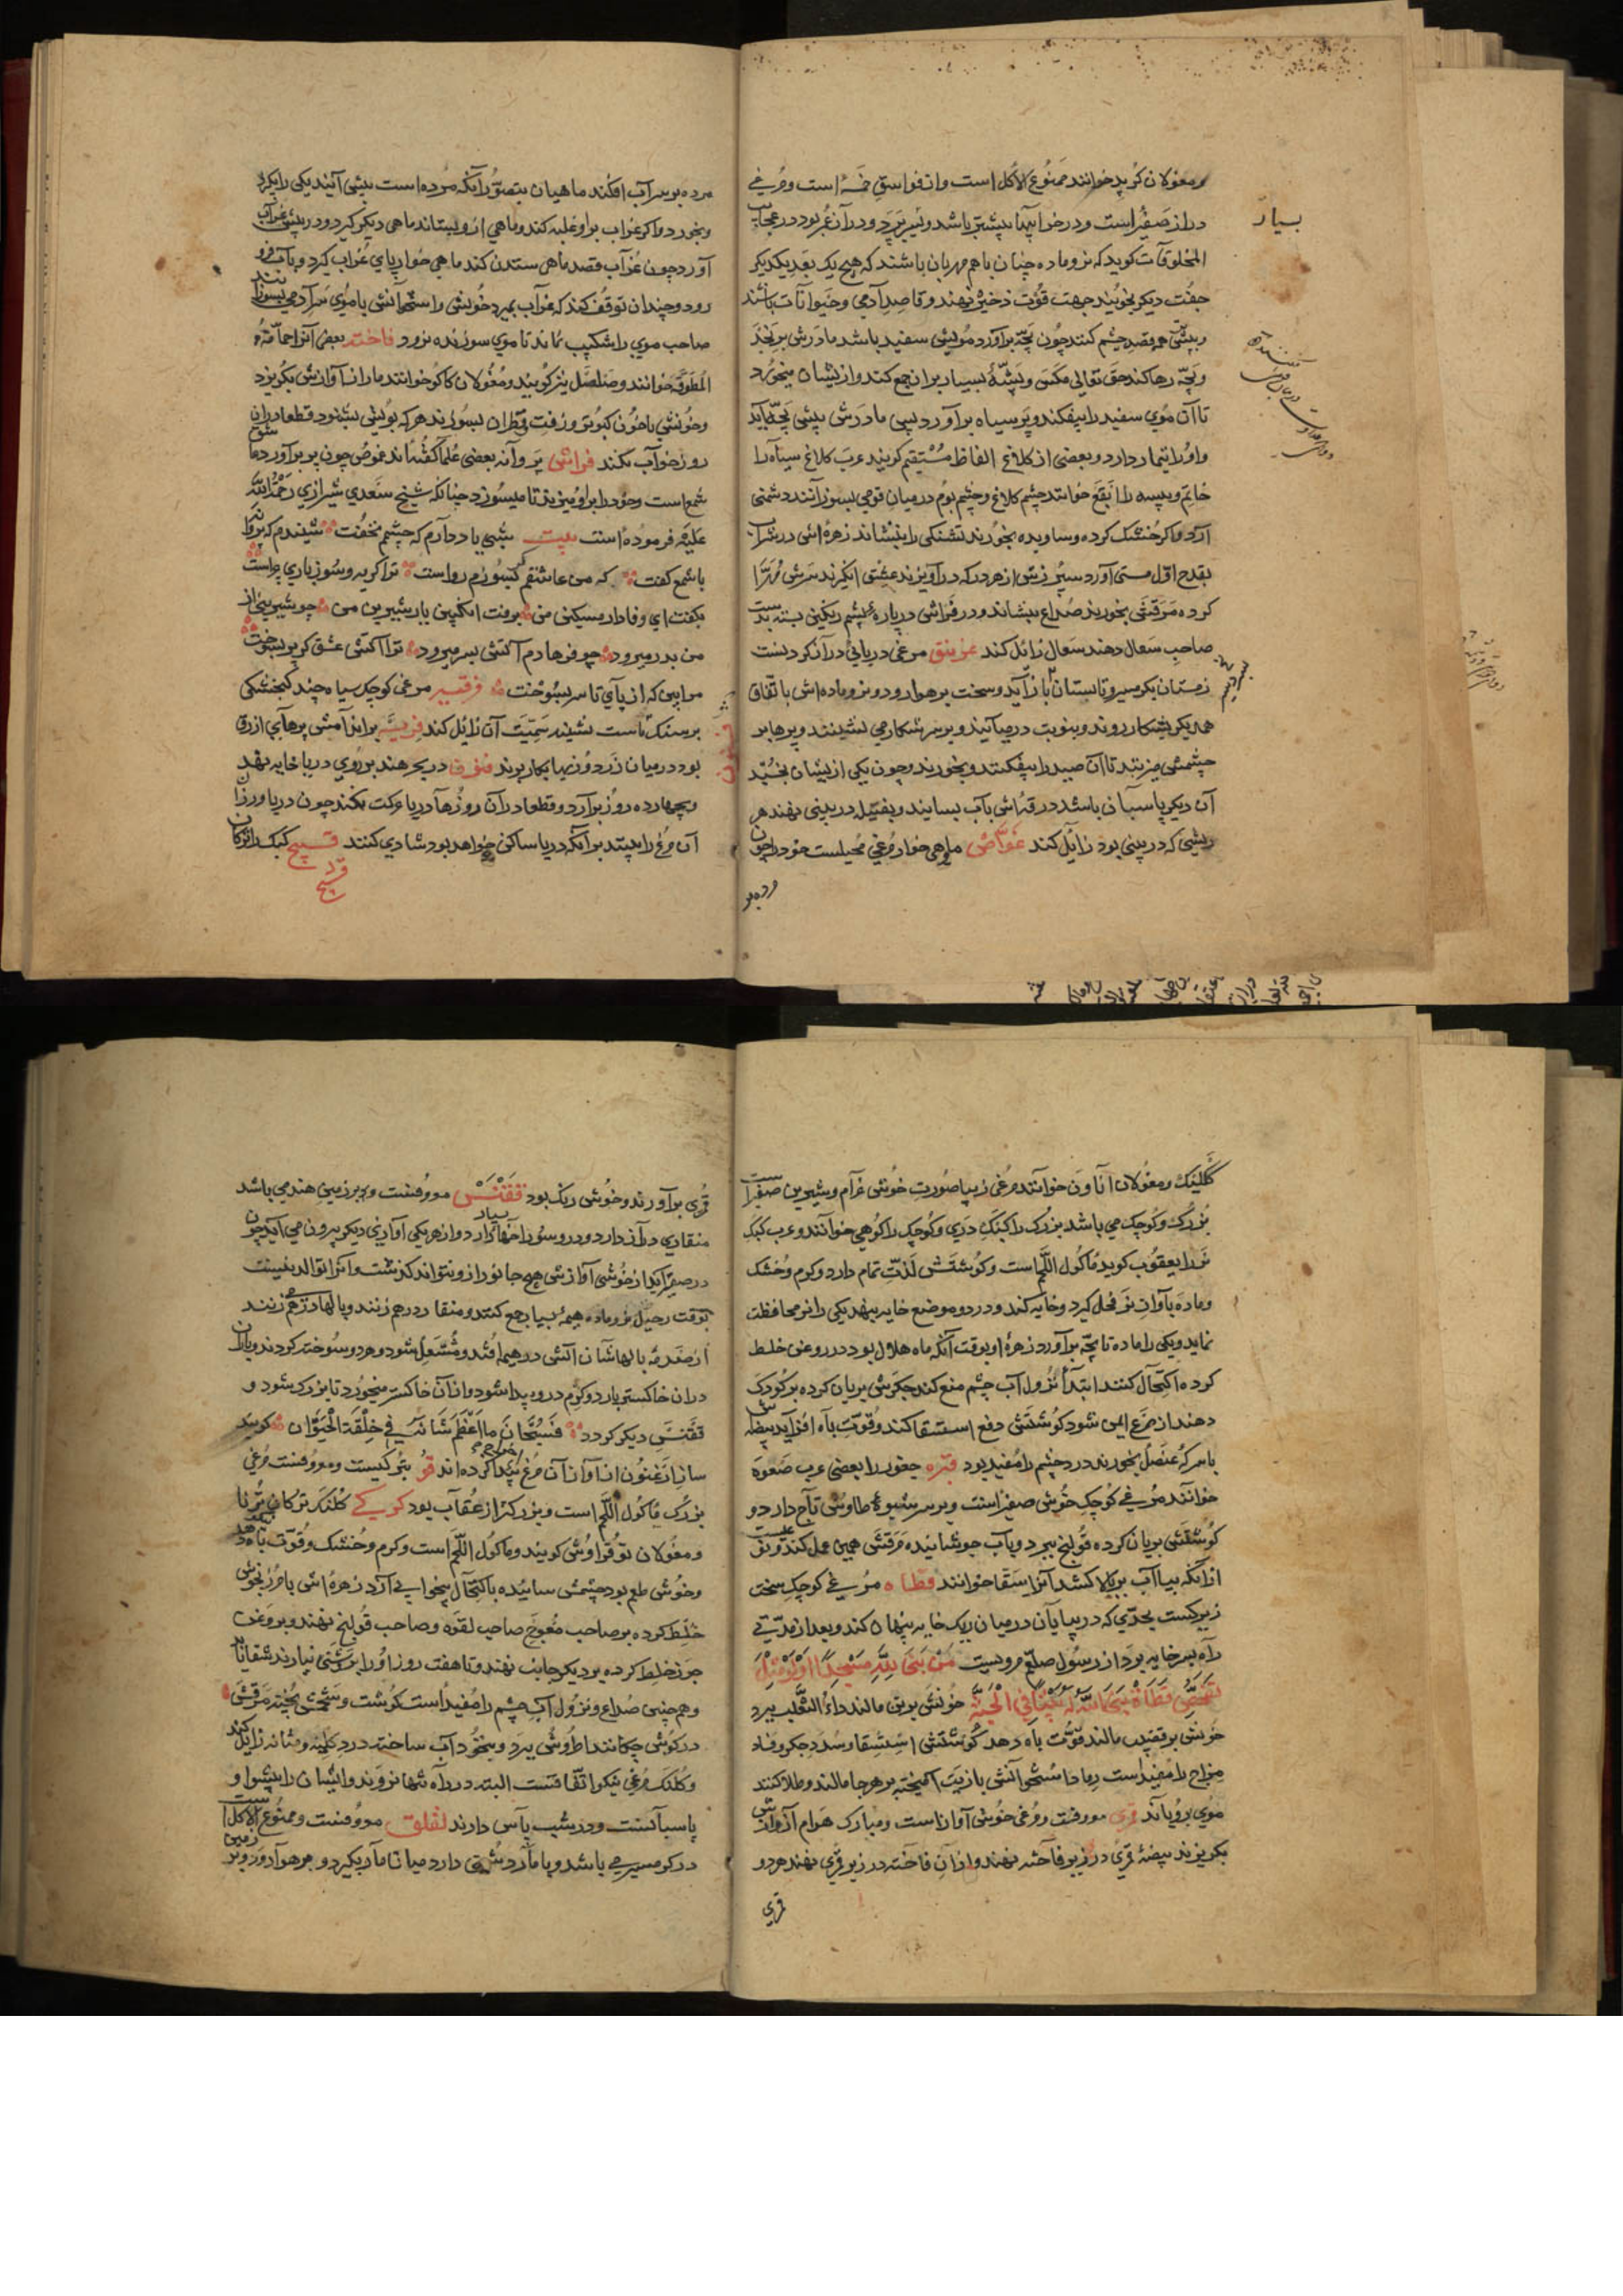 و مغولان کرید خوانند ممنوع الاکل است و از فواسق خمسه است و مرغی
دراز صفیر است و در خوابها بیشتر باشد و در آن عمر بود در عجایب
المخلوقات کوید که نر و ماده چنان با هم مهربان باشند که هیچ یک بعد یکدیگر
جفت دیکر نجویند جهت قوت ذخیره نهند و قاصد آدمی و حیوانات باشند
و بیشتر قصد چشم کنند چون بچه برآورد مویش سفید باشد مادرش برنجد
و بچه رها کند حق تعالی مکس و پشه بسیار بران جمع کند و از ایشان میخورد
تا آن موی سفید را بیفکند و پر سیاه برآورد پس مادرش پیش بچه آید
و او را تیمار دارد و بعضی از کلاغ الفاظ مستقیم کویند عرب کلاغ سیاه را
خاتم و پیسه را ابقع خوانند چشم کلاغ و چشم بوم در میان قومی بسوزانند دشمنی
آرد و اکر خشک کرده و ساویده بخورند تشنکی را بنشاند زهره اش در شراب
بقدح اول مستی آورد سپرزش از هر که در آویزند عشق انکیزد سرش مهرا
کرده مرقش بخورند صداع بنشاند و در فراش در پاره پشم رنکین بسته
صاحب سعال دهند سعال زائل کند غرنیق مرغی دریائی دراز کردنست
زمستان بکرمسیر و تابستان باز آید و سخت بر هوا رود و نر و ماده اش باتفاق
همدیکر بشکار روند و بنوبت در می آیند و بر سر شکار می نشینند و پرها بر
چشمش میزنند تا آن صید را بیفکنند و بخورند و چون یکی از ایشان بخسبد
آن دیکر پاسبان باشد ذرقه اش بآب بسایند و بفتیله در بینی نهند هر
ریشی که در بینی بود زائل کند غواص ماهی خوار مرغی محیلست خود را چون
رده بر
بسیار
مرده بر سر آب افکند ماهیان بتصور آنکه مرده است پیش آیند یکی را بکیرد
و بخورد و اکر غراب برو غلبه کند و ماهی ازو بستاند ماهی دیکر کیرد و در پیش غراب
آورد چون غراب قصد ماهی ستدن کند ماهی خوار پای غراب کیرد و بآب فرو
رود و چندان توقف کند که غراب بمیرد خونش و استخوانش با موی سر آدمی بسوزانند
صاحب موی را شکیب نماند تا موی سوزنده نرود فاخته بعضی آنرا حمامة
المطوقه خوانند و صلصل نیز کویند و مغولان کاکو خوانند ماران از آوازش بکریزد
و خونش با خون کبوتر و زفت و قطران بسوزند هر که بویش بشنود قطعا دران
روز خواب نکند فراش پروانه بعضی علما کفته اند غوص چون پر برآورد
شمع است و خود را برو میزند تا میسوزد چنانکه شیخ سعدی شیرازی رحمة الله
علیه فرموده است بیت شبی یاد دارم که چشمم نخفت شنیدم که پروانه
با شمع کفت که من عاشقم کر بسوزم رواست ترا کریه و سوز باری چراست
بکفت ای وفادار مسکین من برفت انکبین یار شیرین من چو شیرینی از
من بدر میرود چو فرهادم آتش بسر میرود ترا آتش عشق کر پر بسوخت
مرا بین که از پای تا سر بسوخت فرفیر مرغی کوچک سیاه چند کنجشکی
بر سنک ماست نشیند سمیت آن زائل کند
بود در میان زردوزیها بکار برند فنون در بحر هند بر روی دریا خایه نهد
و بچهارده روز برآرد و قطعا درآن روزها دریا حرکت نکند چون دریاورزان
آن مرغ را بینند برآنکه دریا ساکن خواهد بود شادی کنند قبج کبک را ترکان
ککلیک و مغولان اتاون خوانند مرغی زیبا صورت خوش خرام و شیرین صفیر است
بزرک و کوچک می باشد بزرک را کبک دری و کوچک را کوهی خوانند و عرب کبک
نر را یعقوب کوید ماکول اللحم است و کوشتش لذت تمام دارد و کرم و خشک
و ماده باواز نر فحل کیرد و خایه کند و در دو موضع خایه بنهد یکی را نر محافظت
نماید و یکی را ماده تا بچه برآورد زهره او بوقت آنکه ماه هلال بود در روغن خلط
کرده اکتحال کنند ابتدا نزول آب چشم منع کند جکرش بریان کرده بر کودک
دهند از صرع ایمن شود کوشتش دفع استسقا کند و قوت باه افزاید بیضه اش
با سرکه عنصل بخورند درد چشم را مفید بود قبره جغور را بعضی عرب صعوه
خوانند مرغی کوچک خوش صفیر است و بر سر شبیه طاوس تاج دارد و
کوشتش بریان کرده قولنج ببرد و بآب جوشانیده مرقش همین عمل کند
از آنکه بسیار آب بر بالا کشد آنرا سقا خوانند قطاه مرغی کوچک سخت
زیرکست بحدی که در بیابان در میان ریک خایه پنهان کند و بعد از مدتی
راه بسر خایه برد از رسول صلعم مرویست من بنی لله مسجدا او لو مثل
مفحص قطاة بنی الله له بیتا فی الجنة خونش برین مالند داء الثعلب ببرد
خونش بر قضیب مالند قوت باه دهد کوشتش استسقا و سدد جکر و فساد
مزاج را مفید است رماد استخوانش با زیت آمیخته بر هر جا مالند و طلا کنند
موی برویاند قمری معروفست و مرغی خوش آوازاست و مبارک هوام از آوازش
بکریزند بیضه قمری در زیر فاخته نهند و ازآن فاخته در زیر قمری نهند هر دو
قمری
قمری برآورند و خوش رنک بود ققنس معروفست و در زمین هند می باشد
منقاری دراز دارد و درو سوراخها بسیار دارد و از هر یکی آوازی دیکر بیرون می آید چون
در صفیر آید از خوشی آوازش هیچ جانور ازو نتواند کذشت و آنرا توالد نیست
بوقت رحیل نر و ماده هیمه بسیار جمع کنند و منقار در هم زنند و بالها در هم زنند
از صدمه بالهاشان آتش در هیمه افتد و مشتعل شود و هر دو سوخته کردند و باران
دران خاکستر بارد و کرم درو پیدا شود و از آن خاکستر میخورد تا بزرک شود و
ققنس دیکر کردد فسبحان ما اعظم شانه فی خلقة الحیوان کویند
ساز ارغنون از آواز آن مرغ پیدا کرده اند معروفست مرغی
بزرک ماکول اللحم است و بزرکتر از عقاب بود کرکی کلنک ترکان ترنا
و مغولان توقراوش کویند و ماکول اللحم است و کرم و خشک و قوت باه دهد
و خوش طعم بود چشمش ساییده باکتحال بیخوابی آرد زهره اش با مرزنجوش
خلط کرده بر صاحب مفوخ صاحب لقوه و صاحب قولنج نهند و بروغن
جوز خلط کرده بر دیکر جانب نهند و تا هفت روز او را بروشنی نیارند شفا یابد
و هم چنین صداع و نزول آب چشم را مفید است کوشت و شحمش پخته مرقش
در کوش چکانند اطروشی ببرد و بخورد آب ساخته درد کلیه و مثانه زایل کند
و کلنک مرغی نیکو اتفاقست البته در راه تنها نروند و ایشان را پیشوا و
پاسبانست و در شب پاس دارند لقلق معروفست و ممنوع الاکل است
در کرمسیر می باشد و با مار دشمنی دارد میانها مار بکیرد و بر هوا آرد و بر زمین